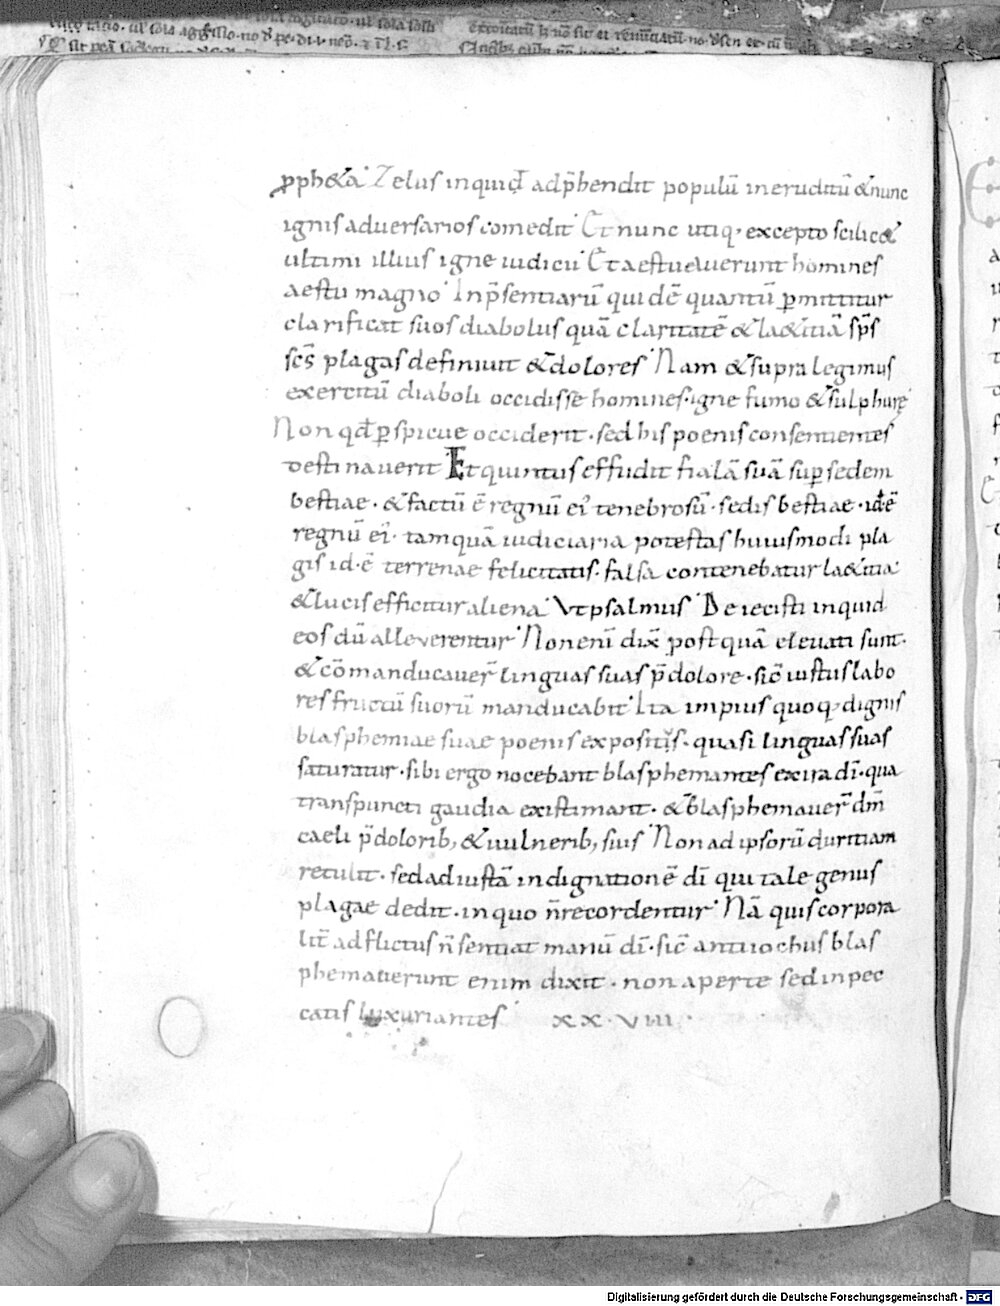 ꝓph&a Zelus inquid adp̄hendit populū ineruditū &nunc
ignis adversarios comedit Et nunc utiq; excepto scilic&
ultimi illius igne iudicii Et aestuaverunt homines
aestu magno Inp̄sentiarū qui dē quantū ꝑmittitur
clarificat suos diabolus quā claritatē & la&itiā sp̄s
sc̄s plagas definiuit & dolores Nam & supra legimus
exercitū diaboli occidisse homines igne fumo & sulphure
Non qđ ꝑspicue occiderit sed his poenis consentientes
destinaverit Et quintus effudit fialā suā suꝑ sedem
bestiae · & factū ē regnū ei' tenebrosū · sedis bestiae · idē
regnū ei' · tamquā iudiciaria potestas huiusmodi pla
gis id · ē terrenae felicitatis · falsa contenebatur la&itia
& lucis efficitur aliena Ut psalmus Deiecisti inquid
eos dū alleverentur Non enī dix̄ postquā elevati sunt ·
& cōmanducauer̄ linguas suas p̄ dolore · sic̄ iustus labo
res fructū suorū manducabit Ita impius quoq; dignis
blasphemiae suae poenis expositis · quasi linguas suas
saturatur · sibi ergo nocebant blasphemantes ex ira dī · qua
transpuncti gaudia existimant · & blasphemauer̄ dm̄
caeli p̄ dolorib; & uulnerib; suis Non ad ipsorū duritiam
retulit · sed ad iustā indignationē dī qui tale genus
plagae dedit · in quo n̄ recordentur Nā quis corpora
lit̄ adflictus n̄ sentiat manū dī · sic̄ antiiochus blas
phemauerunt enim dixit · non aperte sed in pec
catis luxuriantes xx · viii ·
Digitalisierung gefördert durch die Deutsche Forschungsgemeinschaft - DFG